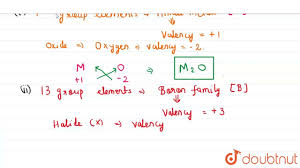 group elements → Alkali Metal
Valency = +1
Oxide → Oxygen → valency = -2.
M O ⇒ M₂O
+1 -2
(ii) 13 group elements → Boron family [B]
Valency = +3
Halide (X) → valency
doubtnut